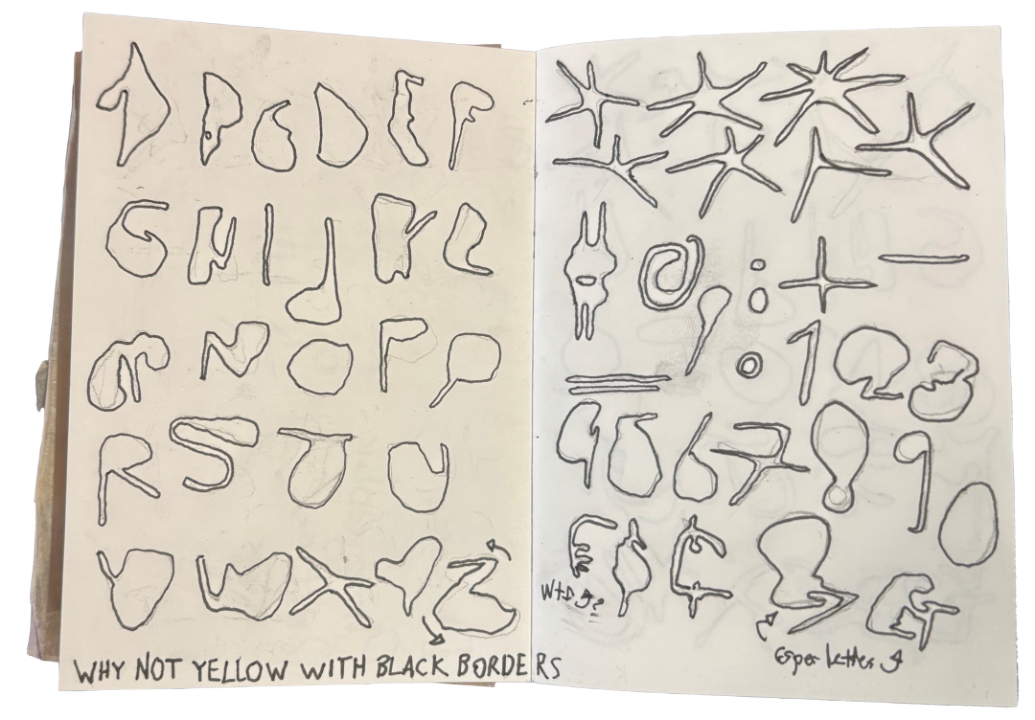 A B C D E F
G H I J K L
M N O P Q
R S T U
V W X Y Z
WHY NOT YELLOW WITH BLACK BORDERS
@ : + -
= , . 1 2 3
4 5 6 7 8 9 0